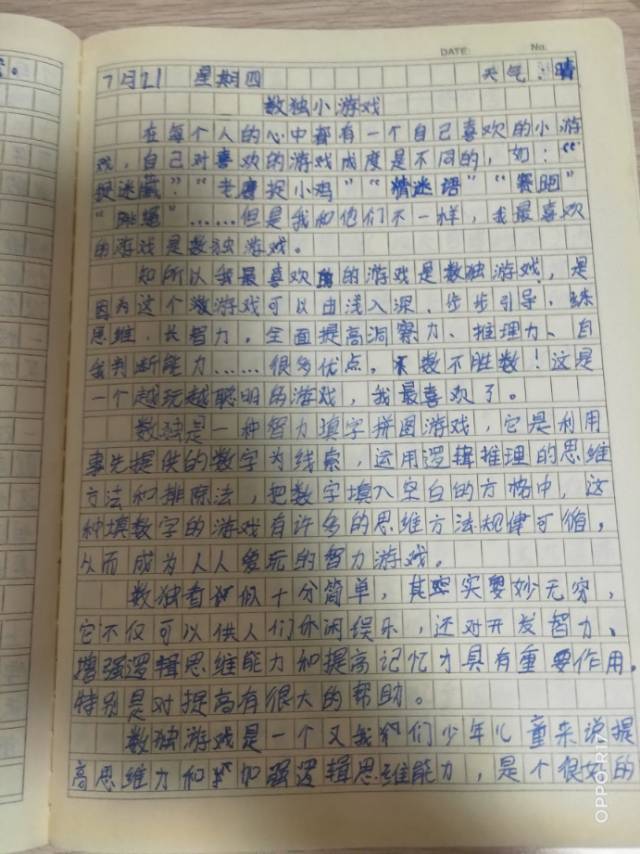 DATE: No.
7月21 星期四 天气:晴
数独小游戏
在每个人的心中都有一个自己喜欢的小游
戏,自己对喜欢的游戏成度是不同的,如:“
捉迷藏”“老鹰捉小鸡”“猜迷语”“赛跑”
“跳绳”……但是我和他们不一样,我最喜欢
的游戏是数独游戏。
知所以我最喜欢的游戏是数独游戏,是
因为这个游戏可以由浅入深、步步引导、练
思维、长智力。全面提高洞察力、推理力、自
我判断能力……很多优点,数不胜数!这是
一个越玩越聪明的游戏,我最喜欢了。
数独是一种智力填字拼图游戏,它是利用
事先提供的数字为线索,运用逻辑推理的思维
方法和排除法,把数字填入空白的方格中,这
种填数字的游戏有许多的思维方法规律可循,
从而成为人人爱玩的智力游戏。
数独看似十分简单,其实要妙无穷,
它不仅可以供人们休闲娱乐,还对开发智力、
增强逻辑思维能力和提高记忆力具有重要作用。
特别是对提高有很大的帮助。
数独游戏是一个又我们们少年儿童来说提
高思维力和加强逻辑思维能力,是个很好的
OPPO R11